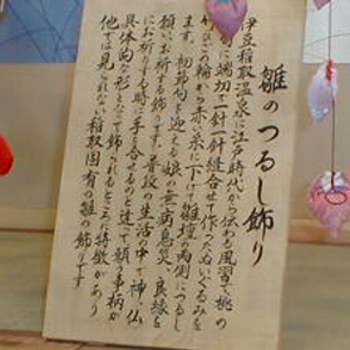 雛のつるし飾り
伊豆稲取温泉に江戸時代から伝わる風習で、桃の
節句に端切で一針一針縫合せて作ったぬいぐるみを
竹ひごの輪から赤い糸に下げて雛壇の両側につるし
ます。初節句を迎える娘の無病息災、良縁を
願い、お祈する飾りです。普段の生活の中で神・仏
にお祈りする時に手を合せるのと違って願う事柄が
具体的な形となって飾られるところに特徴があり
他では見られない稲取固有の雛の飾りです